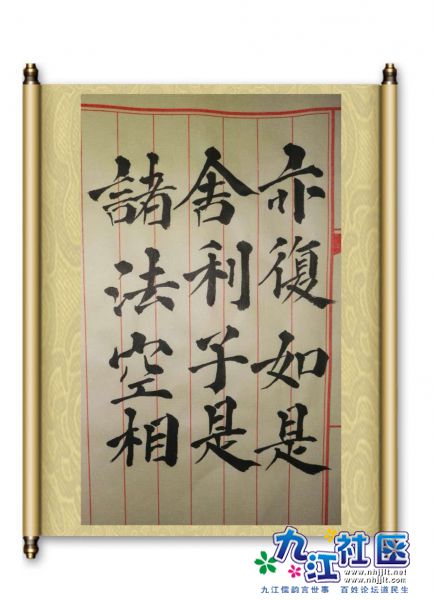 亦復如是
舍利子是
諸法空相
九江社区
www.nhjjlt.net
www.nhjjlt.com
九江儒韵言世事 百姓论坛道民生